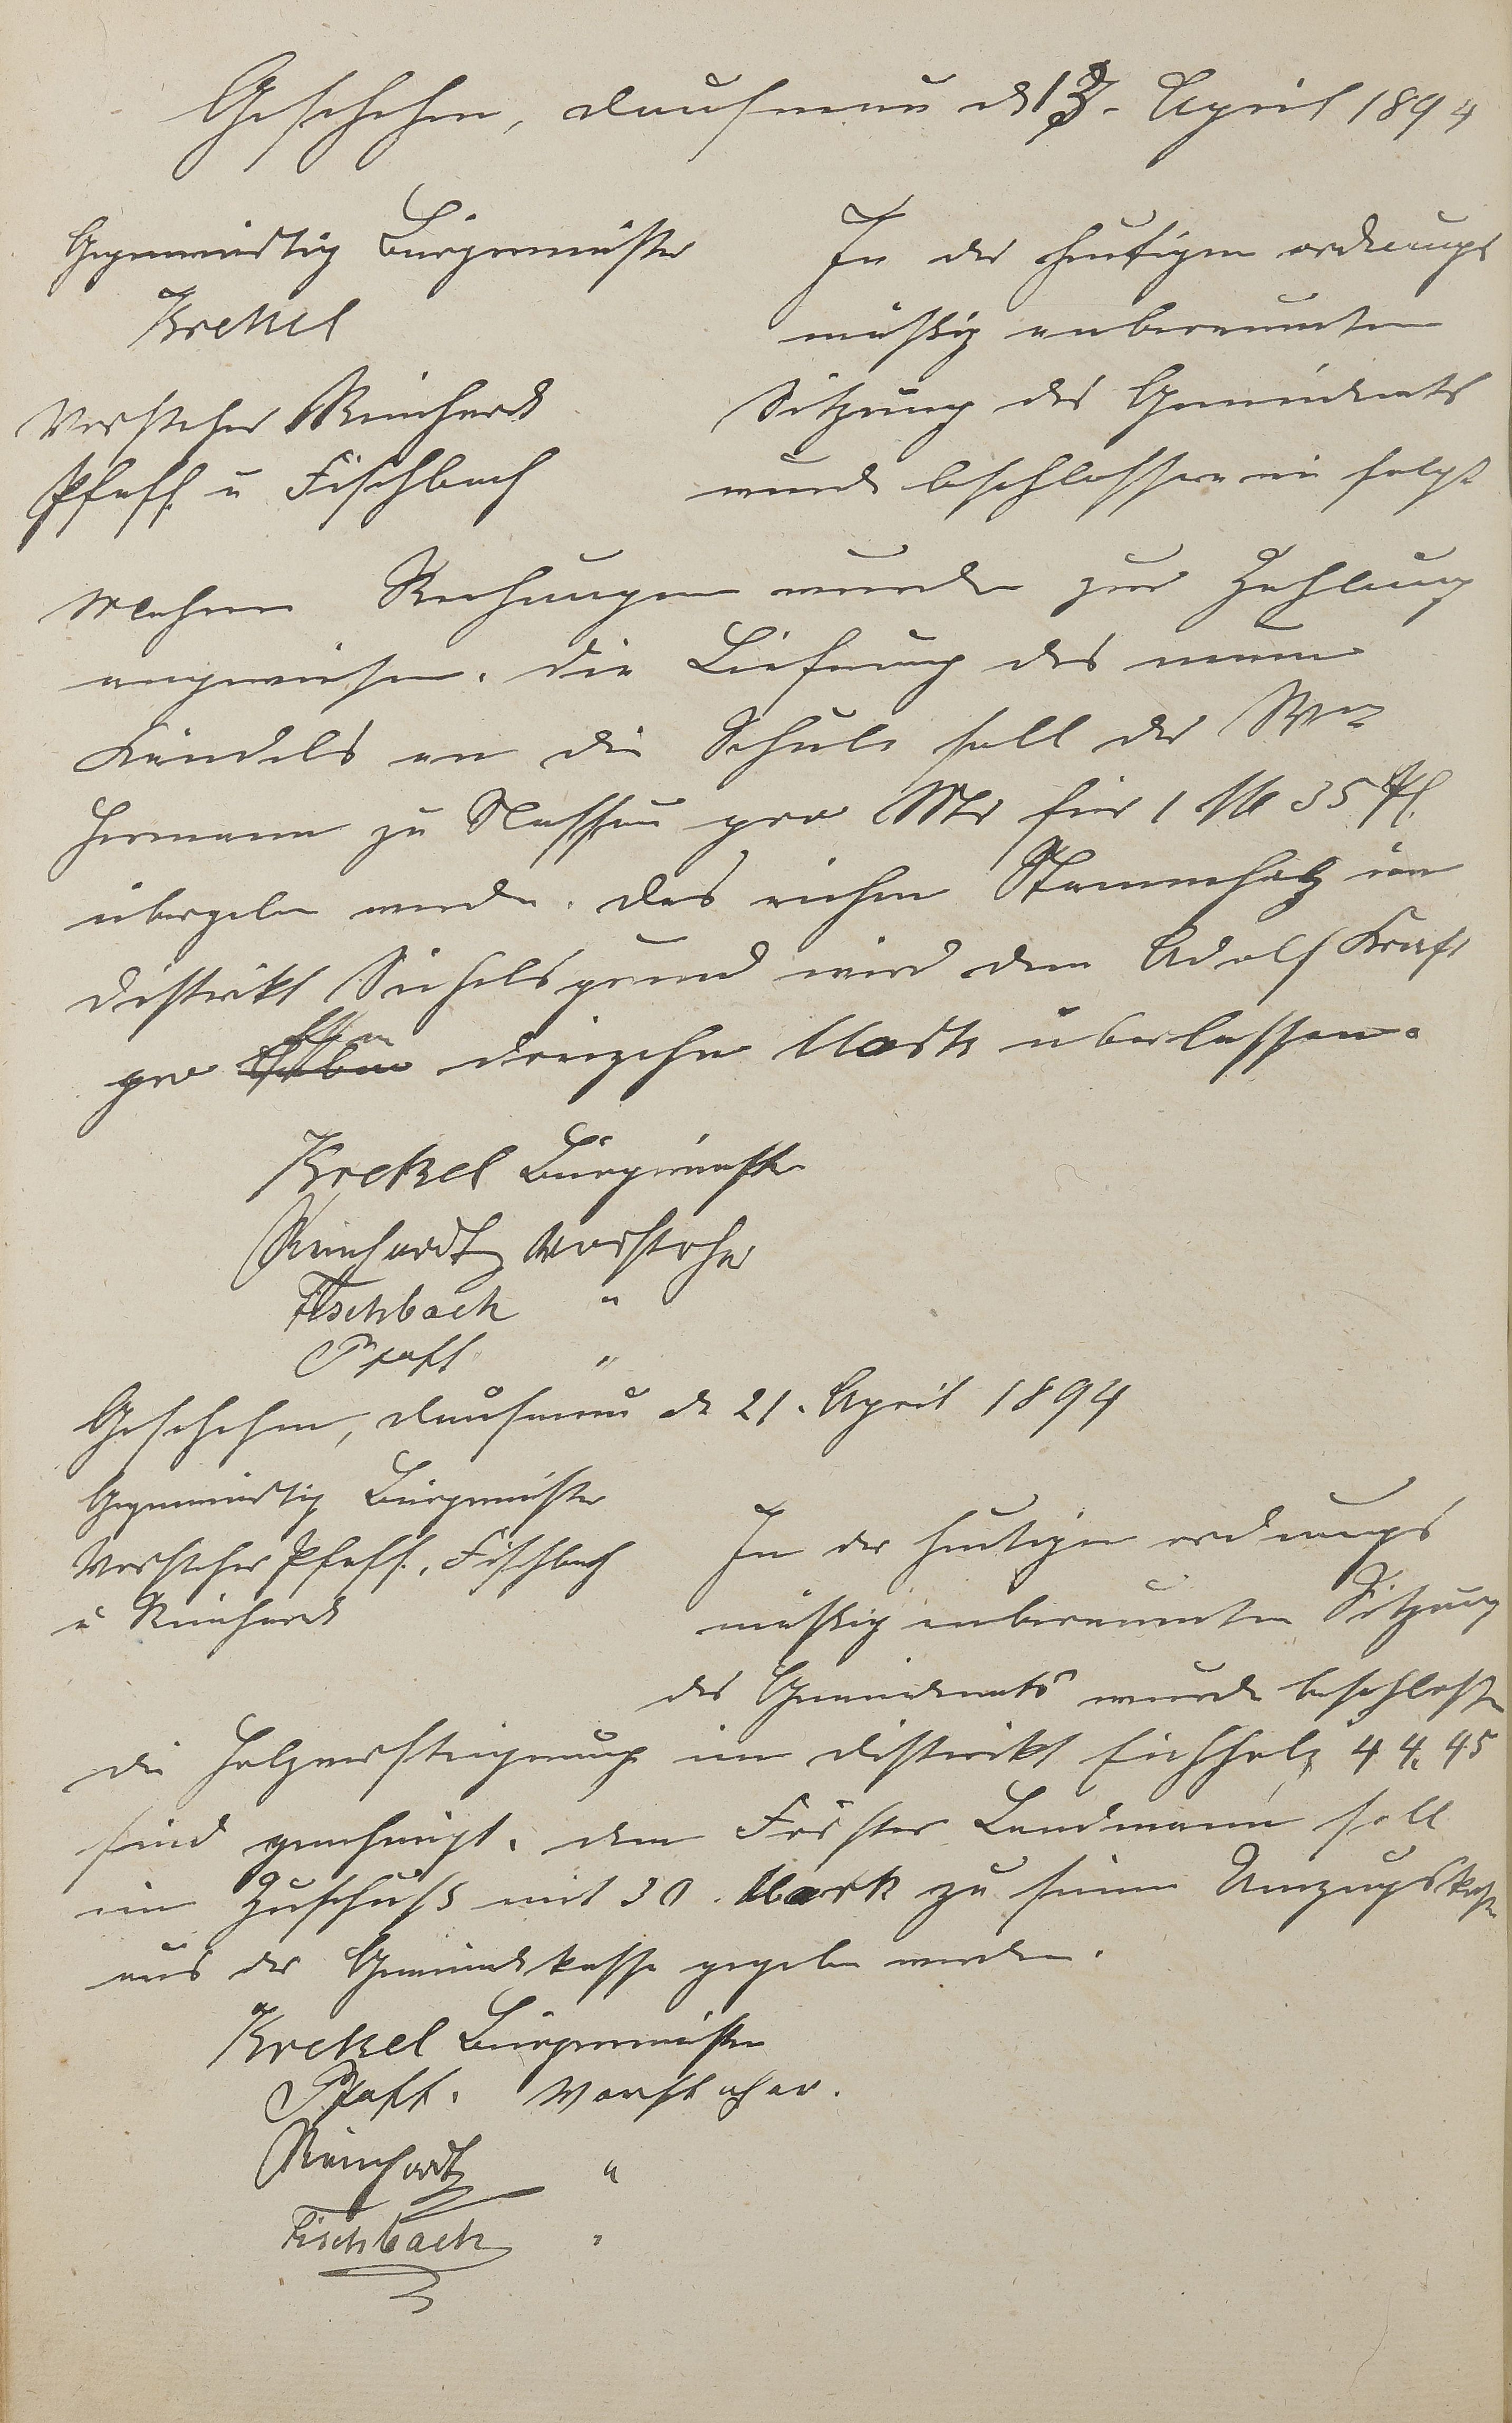 Geschehen, Dausenau d 13. April 1894
Gegenwärtig Bürgermeister
Krekel
Vorsteher Reinhardt
Pfaff u Fischbach
In der heutigen ordnungs
mäßig anberaumten
Sitzung des Gemeinderats
wurde beschlossen wie folgt
Mehrere Rechnungen wurden zur Zahlung
angewiesen. die Lieferung des neuen
Kändels an die Schule soll der
Hermann zu Nassau pro Mtr für 1 M 35 Pf.
übergeben werden. das eichen Stammholz im
Distrikt wird dem Adolf Kraft
pro dreizehn Mark überlassen.
Krekel Bürgermeister
Reinhardt Vorsteher
Fischbach "
Pfaff "
Geschehen, Dausenau d 21. April 1894
Gegenwärtig Bürgermeister
Vorsteher Pfaff, Fischbach
u Reinhardt
In der heutigen ordnungs
mäßig anberaumten Sitzung
des Gemeinderats wurde beschlossen
die Holzversteigerung im Distrikt Eichholz 44. 45
sind genehmigt. dem Förster Landmann soll
ein Zuschuß mit 30. Mark zu seinen Umzugskosten
aus der Gemeindekasse gegeben werden.
Krekel Bürgermeister
Pfaff. Vorsteher.
Reinhardt "
Fischbach "